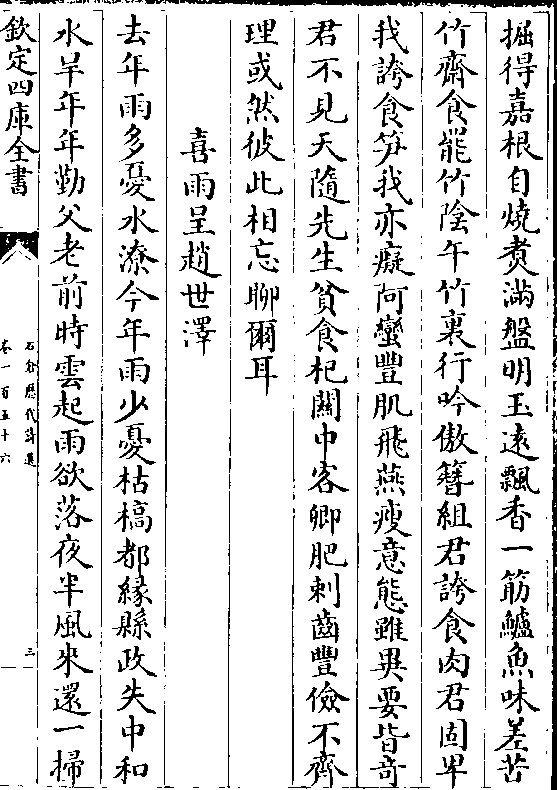 掘得嘉根自燒煑滿盤明玉逺飄香一筯鱸魚味差苦
竹齋食罷竹陰午竹裏行吟傲簪組君誇食肉君固卑
我誇食笋我亦癡阿蠻豐肌飛燕瘦意態雖異要皆竒
君不見天隨先生貧食杞闗中客卿肥刺齒豐儉不齊
理或然彼此相忘聊爾耳
喜雨呈趙世澤
去年雨多憂水潦今年雨少憂枯槁都縁縣政失中和
水旱年年勤父老前時雲起雨欲落夜半風來還一掃
欽定四庫全書
石倉歷代詩選
卷一百五十六
三